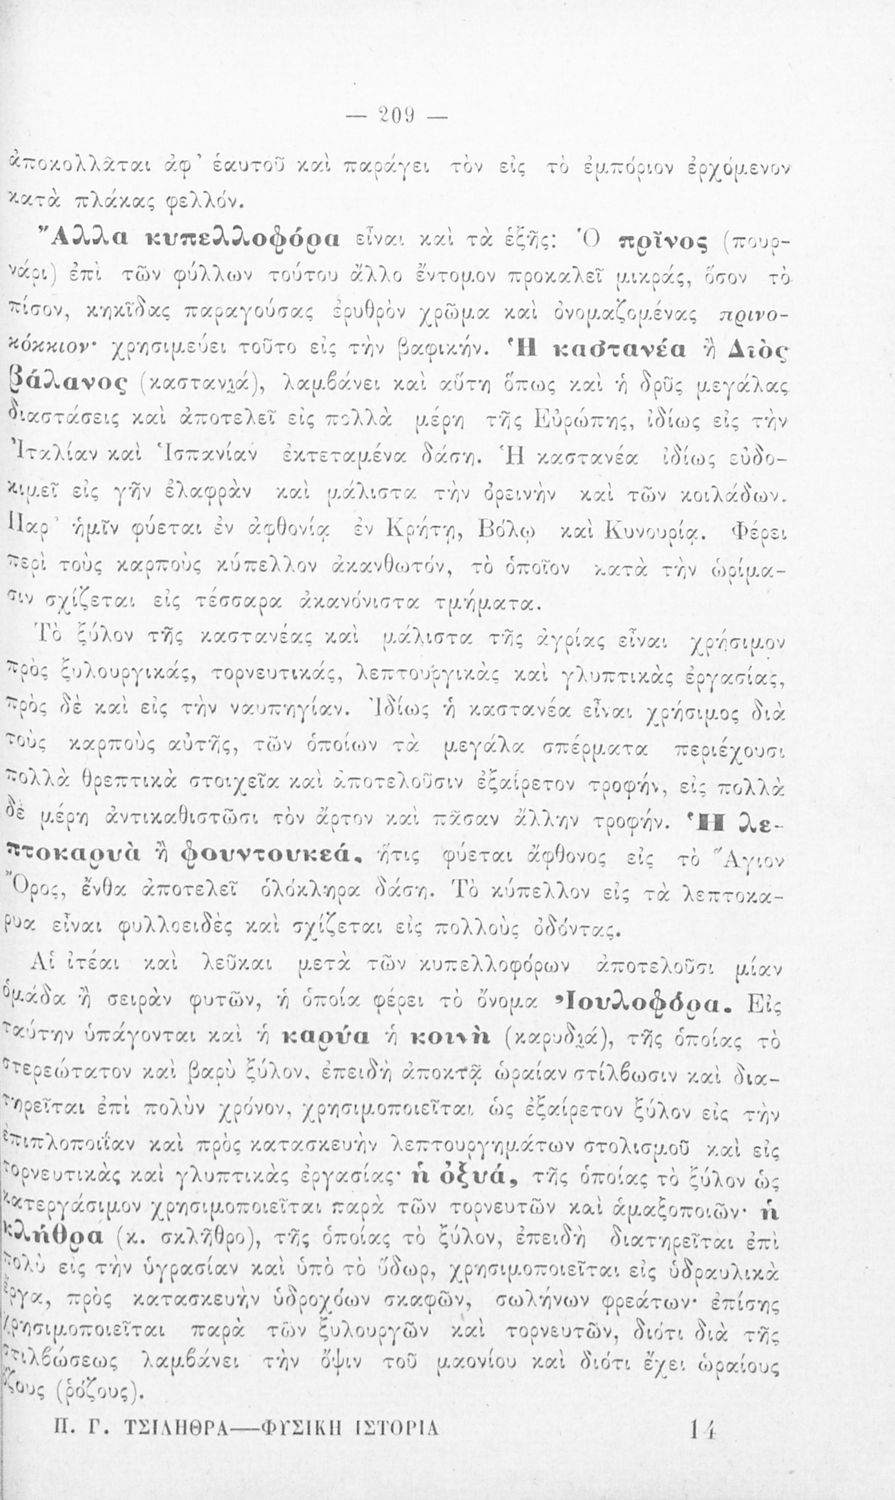 — 209 —
ἀποκολλᾶται ἀφ’ ἑαυτοῦ καὶ παράγει τὸν εἰς τὸ ἐμπόριον ἐρχόμενον
κατὰ πλάκας φελλόν.
Ἄλλα κυπελλοφόρα εἶναι καὶ τὰ ἑξῆς: Ὁ πρῖνος (πουρ-
νάρι) ἐπὶ τῶν φύλλων τούτου ἄλλο ἔντομον προκαλεῖ μικράς, ὅσον τὸ
πίσον, κηκῖδας παραγούσας ἐρυθρὸν χρῶμα καὶ ὀνομαζομένας πρινο-
κόκκιον· χρησιμεύει τοῦτο εἰς τὴν βαφικήν. Ἡ καστανέα ἢ Διὸς
βάλανος (καστανιά), λαμβάνει καὶ αὕτη ὅπως καὶ ἡ δρῦς μεγάλας
διαστάσεις καὶ ἀποτελεῖ εἰς πολλὰ μέρη τῆς Εὐρώπης, ἰδίως εἰς τὴν
Ἰταλίαν καὶ Ἱσπανίαν ἐκτεταμένα δάση. Ἡ καστανέα ἰδίως εὐδο-
κιμεῖ εἰς γῆν ἐλαφρὰν καὶ μάλιστα τὴν ὀρεινὴν καὶ τῶν κοιλάδων.
Παρ’ ἡμῖν φύεται ἐν ἀφθονίᾳ ἐν Κρήτῃ, Βόλῳ καὶ Κυνουρίᾳ. Φέρει
περὶ τοὺς καρποὺς κύπελλον ἀκανθωτόν, τὸ ὁποῖον κατὰ τὴν ὡρίμα-
σιν σχίζεται εἰς τέσσαρα ἀκανόνιστα τμήματα.
Τὸ ξύλον τῆς καστανέας καὶ μάλιστα τῆς ἀγρίας εἶναι χρήσιμον
πρὸς ξυλουργικάς, τορνευτικάς, λεπτουργικὰς καὶ γλυπτικὰς ἐργασίας,
πρὸς δὲ καὶ εἰς τὴν ναυπηγίαν. Ἰδίως ἡ καστανέα εἶναι χρήσιμος διὰ
τοὺς καρποὺς αὐτῆς, τῶν ὁποίων τὰ μεγάλα σπέρματα περιέχουσι
πολλὰ θρεπτικὰ στοιχεῖα καὶ ἀποτελοῦσιν ἐξαίρετον τροφήν, εἰς πολλὰ
δὲ μέρη ἀντικαθιστῶσι τὸν ἄρτον καὶ πᾶσαν ἄλλην τροφήν. Ἡ λε-
πτοκαρυὰ ἢ φουντουκεά, ἥτις φύεται ἄφθονος εἰς τὸ Ἅγιον
Ὄρος, ἔνθα ἀποτελεῖ ὁλόκληρα δάση. Τὸ κύπελλον εἰς τὰ λεπτοκα-
ρυα εἶναι φυλλοειδὲς καὶ σχίζεται εἰς πολλοὺς ὀδόντας.
Αἱ ἰτέαι καὶ λεῦκαι μετὰ τῶν κυπελλοφόρων ἀποτελοῦσι μίαν
ὁμάδα ἢ σειρὰν φυτῶν, ἡ ὁποία φέρει τὸ ὄνομα Ἰουλοφόρα. Εἰς
ταύτην ὑπάγονται καὶ ἡ καρύα ἡ κοινὴ (καρυδιά), τῆς ὁποίας τὸ
στερεώτατον καὶ βαρὺ ξύλον, ἐπειδὴ ἀποκτᾷ ὡραίαν στίλβωσιν καὶ δια-
τηρεῖται ἐπὶ πολὺν χρόνον, χρησιμοποιεῖται ὡς ἐξαίρετον ξύλον εἰς τὴν
ἐπιπλοποιΐαν καὶ πρὸς κατασκευὴν λεπτουργημάτων στολισμοῦ καὶ εἰς
τορνευτικὰς καὶ γλυπτικὰς ἐργασίας· ἡ ὀξυά, τῆς ὁποίας τὸ ξύλον ὡς
κατεργάσιμον χρησιμοποιεῖται παρὰ τῶν τορνευτῶν καὶ ἁμαξοποιῶν· ἡ
κλήθρα (κ. σκλῆθρο), τῆς ὁποίας τὸ ξύλον, ἐπειδὴ διατηρεῖται ἐπὶ
πολὺ εἰς τὴν ὑγρασίαν καὶ ὑπὸ τὸ ὕδωρ, χρησιμοποιεῖται εἰς ὑδραυλικὰ
ἔργα, πρὸς κατασκευὴν ὑδροχόων σκαφῶν, σωλήνων φρεάτων· ἐπίσης
χρησιμοποιεῖται παρὰ τῶν ξυλουργῶν καὶ τορνευτῶν, διότι διὰ τῆς
στιλβώσεως λαμβάνει τὴν ὄψιν τοῦ μαονίου καὶ διότι ἔχει ὡραίους
ὄζους (ῥόζους).
Π. Γ. ΤΣΙΛΗΘΡΑ—ΦΥΣΙΚΗ ΙΣΤΟΡΙΑ 14